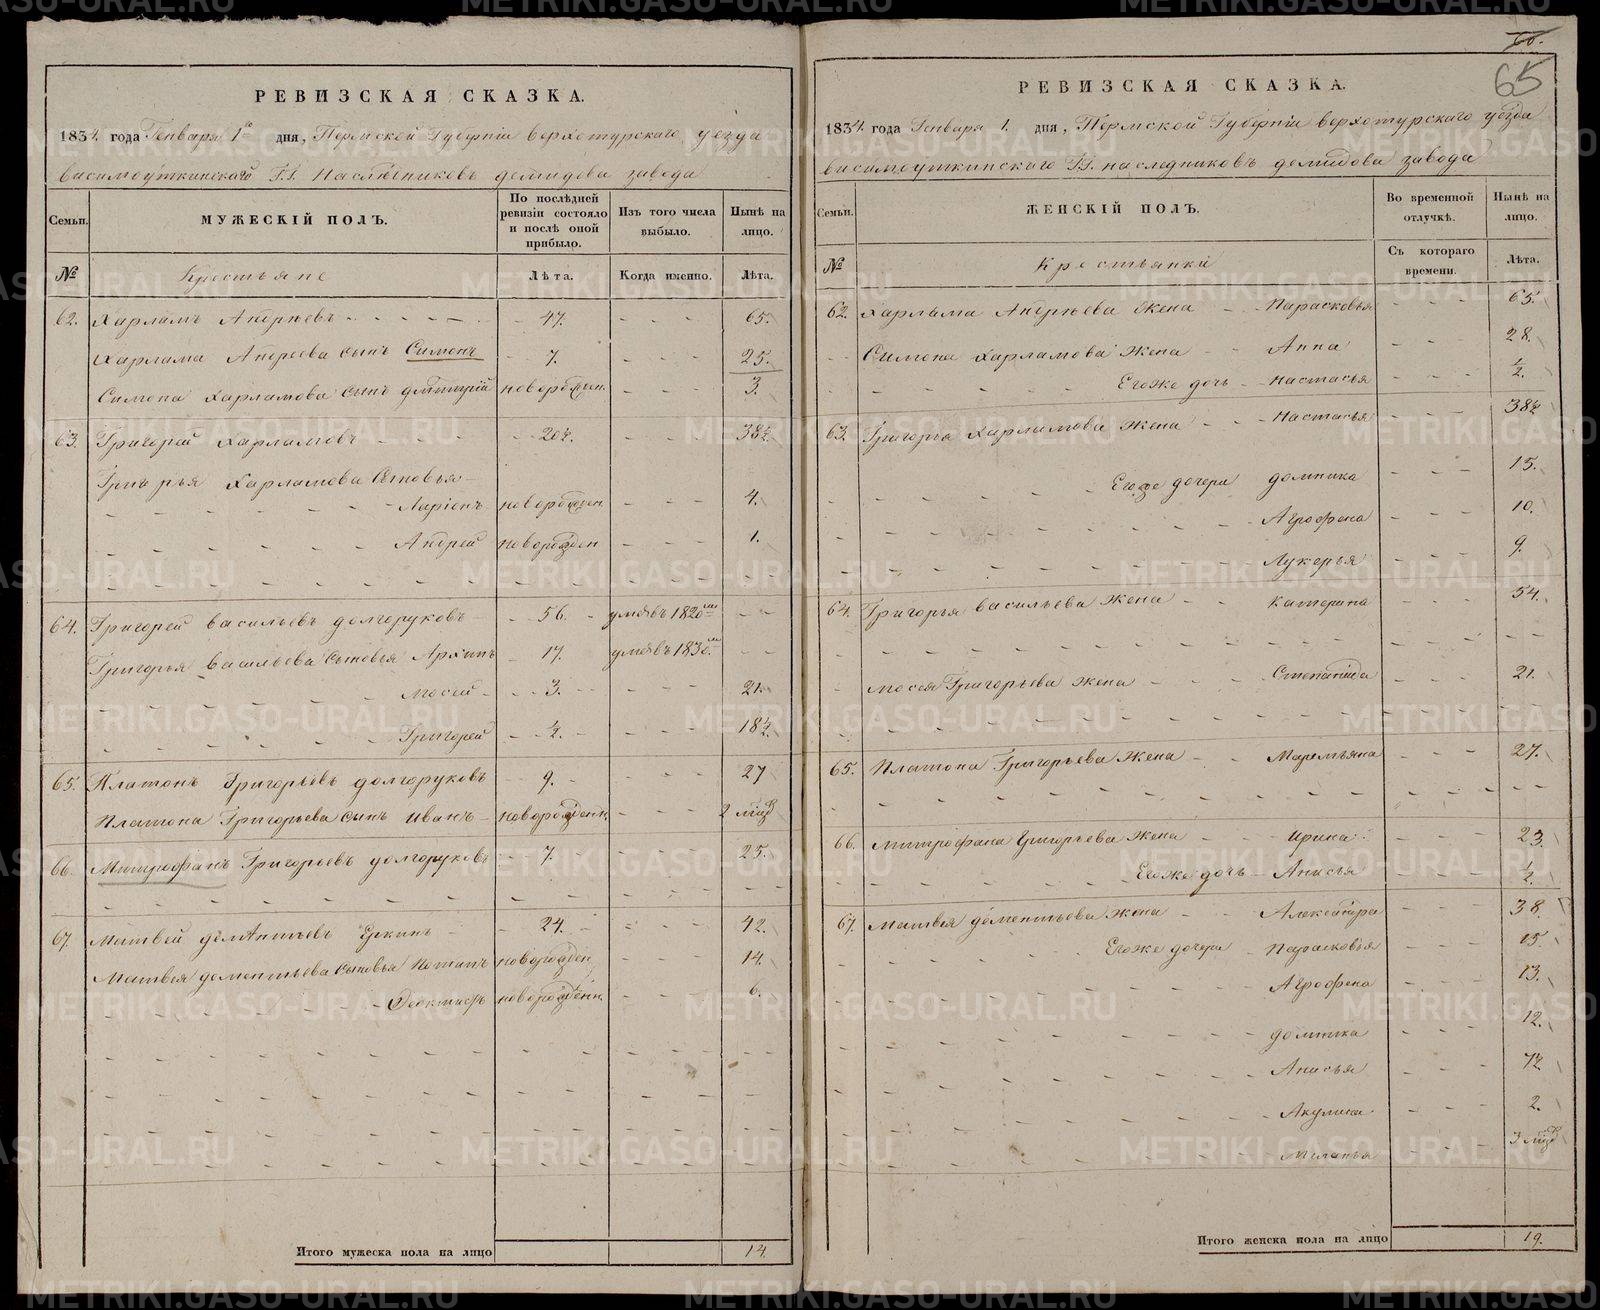 РЕВИЗСКАЯ СКАЗКА.
1834. года Генваря 1го дня, Пермской Губернiи верхотурскаго уезда
висимоуткинскаго Г.Г. Наслѣдниковъ демидова завода
Семьи. МУЖЕСКIЙ ПОЛЪ. По послѣдней ревизiи состояло и послѣ оной прибыло. Изъ того числа выбыло. Нынѣ на лицо.
№ Крестьяне Лѣта. Когда именно. Лѣта.
62. Харламъ Андрѣевъ 47. 65.
Харлама Андреева сынъ Симонъ 7. 25.
Симона Харламова сынъ дмитрiй новорожден. 3.
63. Григорей Харламовъ 20½. 38½.
Григорья Харламова Сыновья
Ларiонъ новорожден. 4.
Андрей новорожден 1.
64. Григорей васильевъ долгоруковъ 56. умѣръ 1820го
Григорья васильева Сыновья Архипъ 17. умѣръ 1830го
Мосей 3. 21.
Григорей ½. 18½.
65. Платонъ Григорьевъ долгоруковъ 9. 27
Платона Григорьева сынъ Иванъ новорожденн. 2 мѣсяц
66. Митрофанъ Григорьевъ долгоруковъ 7. 25.
67. Матвей дементьевъ Еркинъ 24. 42.
Матвея дементьева Сыновья Потапъ новорожден. 14.
Феоктистъ новорожденн. 6.
Итого мужеска пола на лицо 14.
66.
65
РЕВИЗСКАЯ СКАЗКА.
1834. года Генваря 1. дня, Пермской Губернiи верхотурскаго уезда
висимоуткинскаго Г.Г. наследниковъ демидова завода
Семьи. ЖЕНСКIЙ ПОЛЪ. Во временной отлучкѣ. Нынѣ на лицо.
№ Крестьянки Съ котораго времени. Лѣта.
62. Харлама Андрѣева Жена Парасковья 65.
Симона Харламова Жена Анна 28.
Егоже дочь Настасья ½.
63. Григорья Харламова Жена Настасья 38½
Егоже дочери домника 15.
Агрофена 10.
Лукерья 9.
64. Григорья васильева Жена Катерина 54.
Мосея Григорьева жена Степанида 21.
65. Платона Григорьева Жена Маремьяна 27.
66. Митрофана Григорьева Жена Ирина 23.
Егоже дочь Анисья ½.
67. Матвея дементьева жена Александра 38.
Егоже дочери Парасковья 15.
Агрофена 13.
домника 12.
Анисья 7½
Акулина 2.
Меланья 3 мѣсяц
Итого женска пола на лицо 19.
METRIKI.GASO-URAL.RU